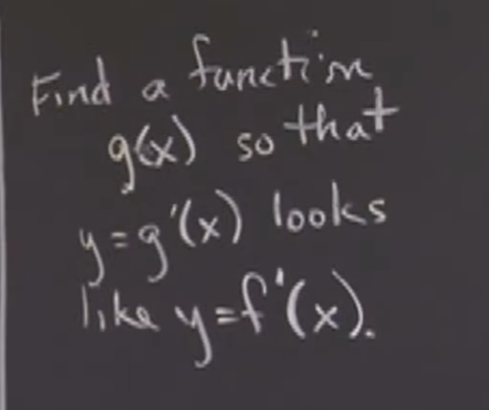 Find a function
g(x) so that
y=g'(x) looks
like y=f'(x).